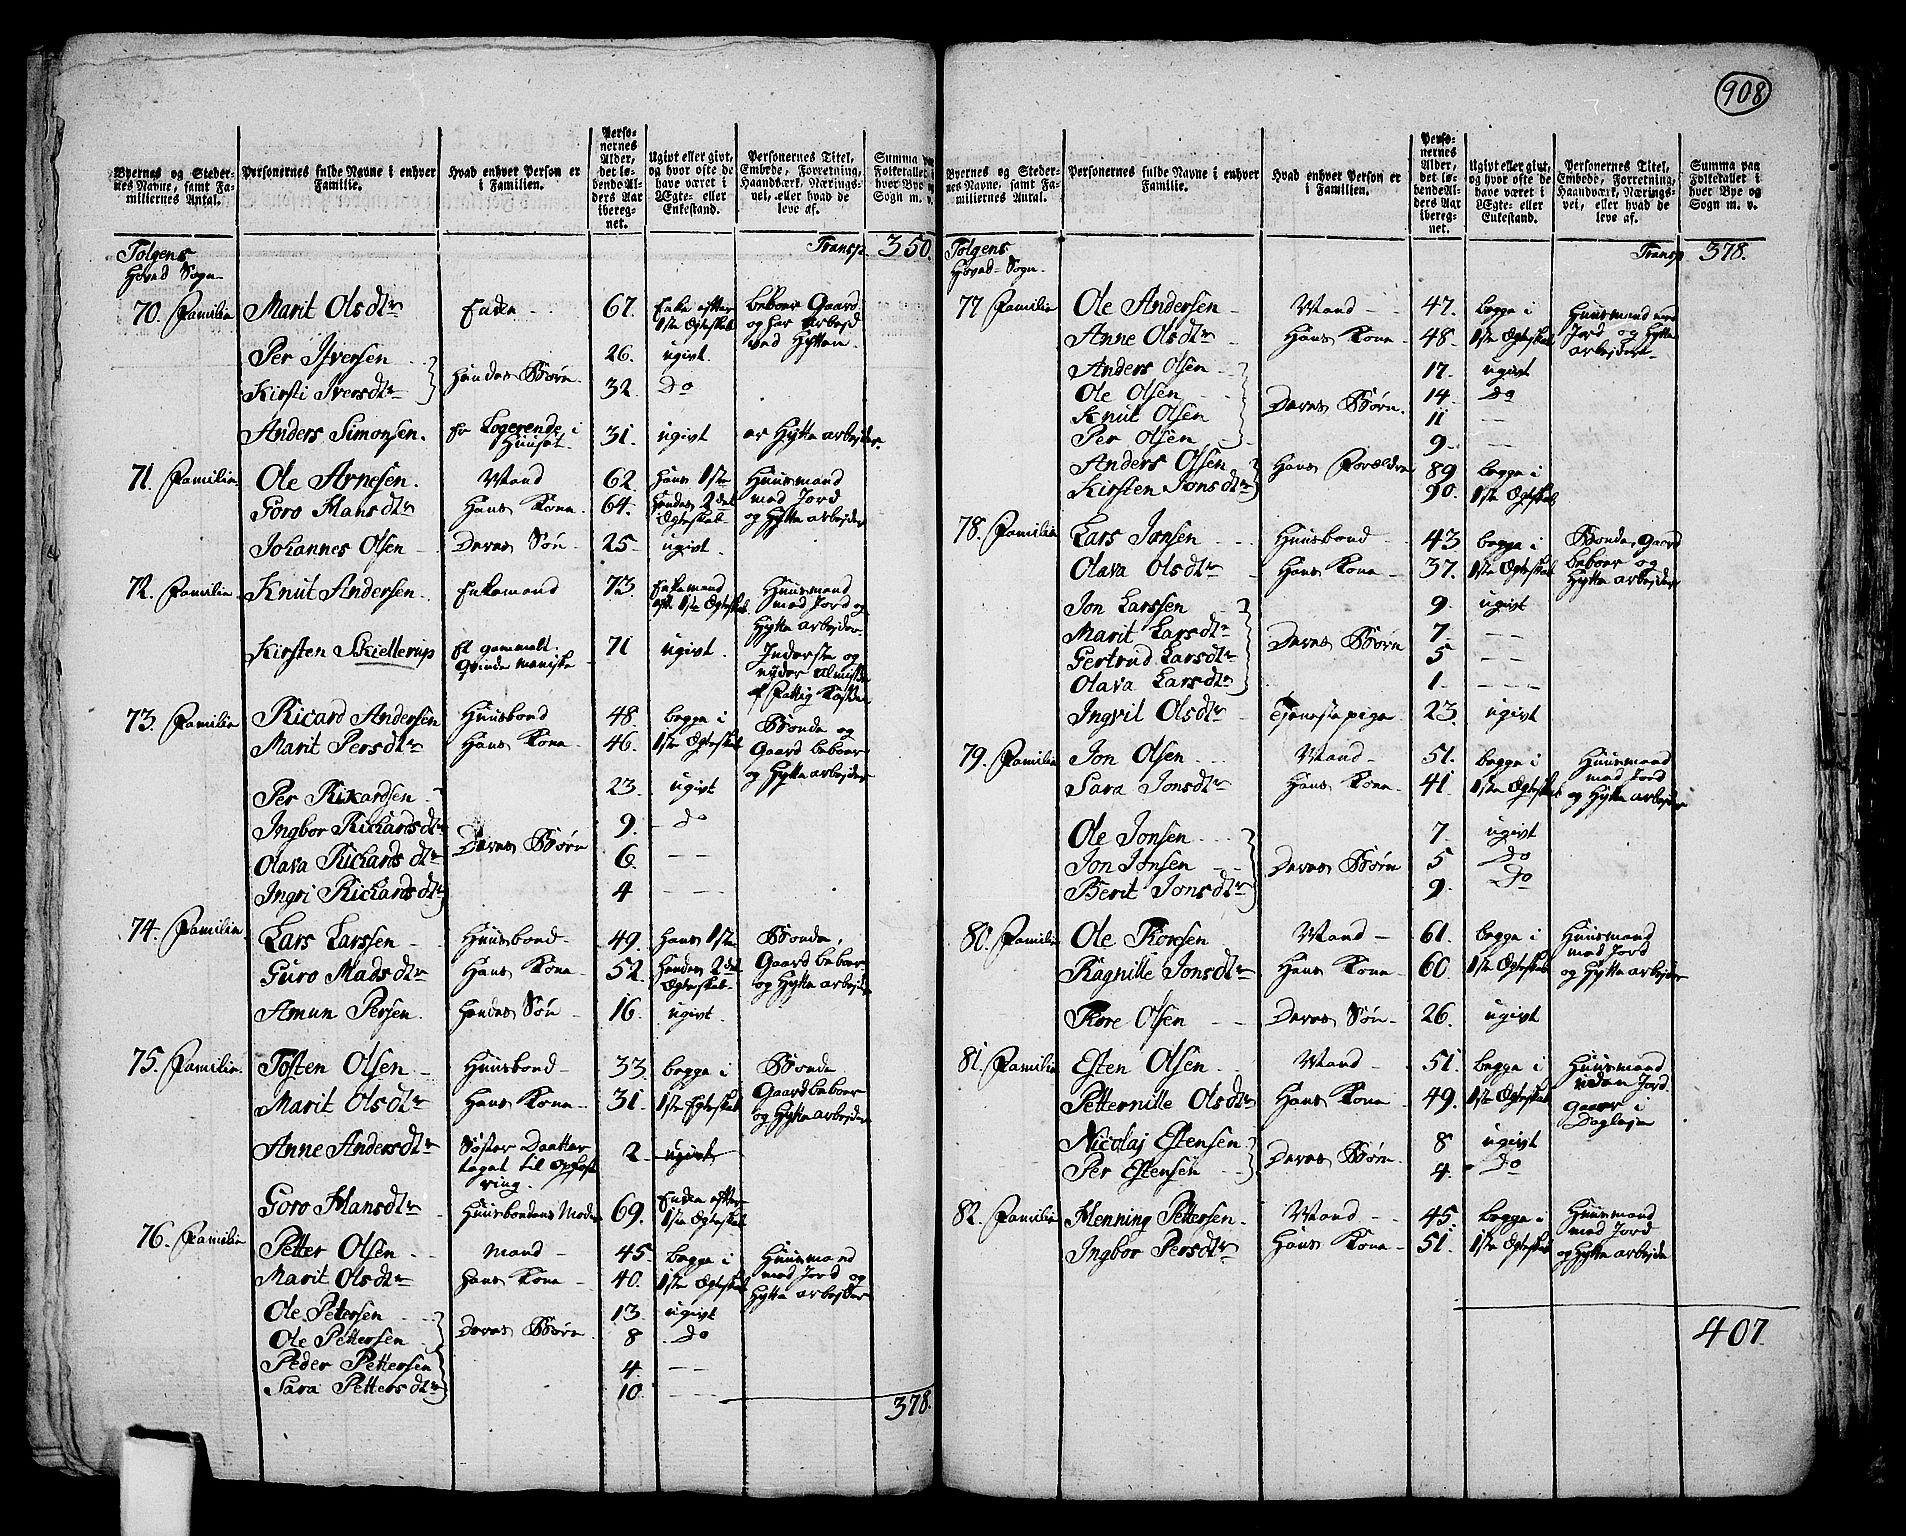 908
Byernes og Steder-
nes Navne, samt Fa-
miliernes Antal.
Personernes fulde Navne i enhver
Familie.
Hvad enhver Person er
i Familien.
Perso-
nernes
Alder,
det lø-
bende Al-
ders Aar
ibereg-
net.
Ugivt eller givt,
og hvor ofte de
have været i
Ægte- eller
Enkestand.
Personernes Titel,
Embede, Forretning,
Haandværk, Nærings-
vei, eller hvad de
leve af.
Summa paa
Folketallet i
hver Bye og
Sogn m. v.
Tolgens Transp. 350.
Hoved Sogn
70. Familie Marit Olsdtr Enke 67. Enke efter 1ste Ægteskab beboer Gaard og har Arbejd ved Hytten
Per Iversen 26. ugivt.
Kirsti Iversdtr Hendes Børn 32. Do
Anders Simonsen. er Logerende i Huuset. 31. ugivt er Hytte arbejder.
71. Familie Ole Arnesen. Mand 62. hans 1ste Huusmand
Goro Hansdtr Hans Kone. 64. hendes 2det Ægteskab med Jord og Hytte arbejder
Johannes Olsen Deres Søn 25. ugivt.
72. Familie Knut Andersen. Enkemand 73. Enkemand eft. 1ste Ægteskab Huusmand med Jord og Hytte arbejder.
Kirsten Skiellerup et gammelt Qvinde meniske 71 ugivt. Inderste og nyder Almisse af Fattig Kassen
73. Familie Ricard Andersen Huusbond 48. begge i Bonde og
Marit Persdtr Hans Kone 46. 1ste Ægteskab Gaard beboer og Hytte arbejder
Per Rikardsen 23. ugivt
Ingbor Richardsdtr 9. Do
Olava Richardsdtr Deres Børn 6. — —
Ingri Richardsdtr 4 — —
74. Familie Lars Larssen Huusbond 49. Hans 1ste Bonde,
Guro Madsdtr Hans Kone 52. Hendes 2det Ægteskab Gaard beboer og Hytte arbejder
Amun Persen. Hendes Søn 16. ugivt.
75. Familie Tosten Olsen Huusbond 33. begge i Bonde
Marit Olsdtr Hans Kone 31. 1ste Ægteskab Gaardbeboer og Hytte arbejder
Anne Andersdtr Søster Daatter taget til Opfostring. 2. ugivt
Goro Hansdtr Huusbondens Moder 69. Enke efter 1ste Ægteskab
76. Familie Petter Olsen Mand 45. begge i Huusmand
Marit Olsdtr hans Kone 40. 1ste Ægteskab med Jord og Hytte arbejder
Ole Petersen 13. ugivt
Ole Pettersen Deres Børn 8 Do
Peder Pettersen 4 — —
Sara Pettersdtr 10 — —
378.
Byernes og Steder-
nes Navne, samt Fa-
miliernes Antal.
Personernes fulde Navne i enhver
Familie.
Hvad enhver Person er
i Familien.
Perso-
nernes
Alder,
det lø-
bende Al-
ders Aar
ibereg-
net.
Ugivt eller givt,
og hvor ofte de
have været i
Ægte- eller
Enkestand.
Personernes Titel,
Embede, Forretning,
Haandværk, Nærings-
vei, eller hvad de
leve af.
Summa paa
Folketallet i
hver Bye og
Sogn m. v.
Tolgens Transp 378.
Hoved-Sogn.
77 Familie Ole Andersen Mand 47. begge i Huusmand med
Anne Olsdtr Hans Kone 48. 1ste Ægteskab Jord og Hytte arbejder
Anders Olsen 17. ugivt
Ole Olsen 14. Do
Knut Olsen Deres Børn. 11 — —
Per Olsen 9. — —
Anders Olsen Hans Forældre 89 begge i
Kirsten Jonsdtr 90. 1ste Ægteskab
78. Familie Lars Jonsen Huusbond 43 begge i Bonde, Gaard
Olava Olsdtr Hans Kone 37. 1ste Ægteskab beboer og Hytte arbejder
Jon Larssen 9. ugivt
Marit Larsdtr Deres Børn 7. — —
Gertrud Larsdtr 5 — —
Olava Larsdtr 1. — —
Ingvil Olsdtr Tjenestepige 23. ugivt
79. Familie Jon Olsen Mand 51. begge i Huusmand
Sara Jonsdtr Hans Kone 41. 1ste Ægteskab med Jord og Hytte arbejder
Ole Jonsen 7. ugivt
Jon Jonsen Deres Børn 5 Do
Berit Jonsdtr 9. Do
80. Familie Ole Toresen Mand 61. begge i Huusmand
Ragnille Jonsdtr Hans Kone 60. 1ste Ægteskab med Jord og Hytte arbejder
Tore Olsen Deres Søn 26. ugivt
81. Familie Esten Olsen Mand 51. begge i Huusmand
Petternille Olsdtr Hans Kone 49. 1ste Ægteskab uden Jord. gaaer i Dagleje
Nicolaj Estensen Deres Børn 8 ugivt
Per Estensen 4. Do
82. Familie Henning Pettersen. Mand 45. begge i Huusmand
Ingbor Persdtr Hans Kone 51. 1ste Ægteskab med Jord og Hytte arbejde
407.